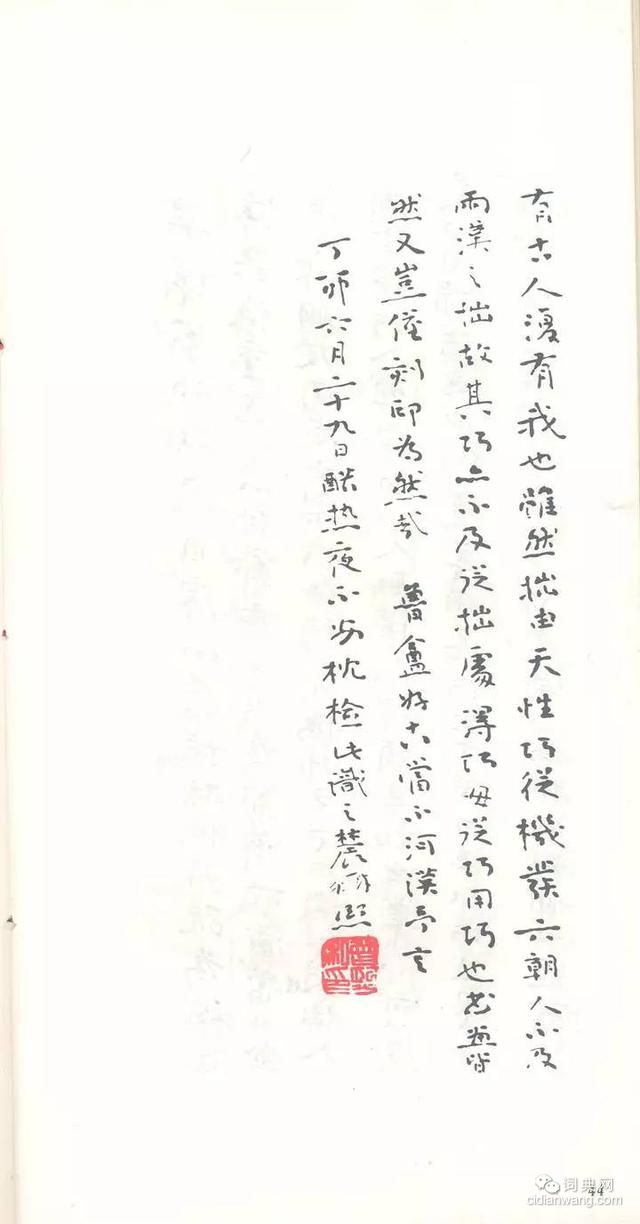 有古人復有我也雖然拙由天性巧從機發六朝人不及
兩漢之拙故其巧亦不及從拙處得巧毋從巧用巧也書畫皆
然又豈僅刻印為然哉 魯盦好古當不河漢予言
丁卯六月二十九日酷热夜不安枕檢此識之農髯熙
44
词典网
cidianwang.com